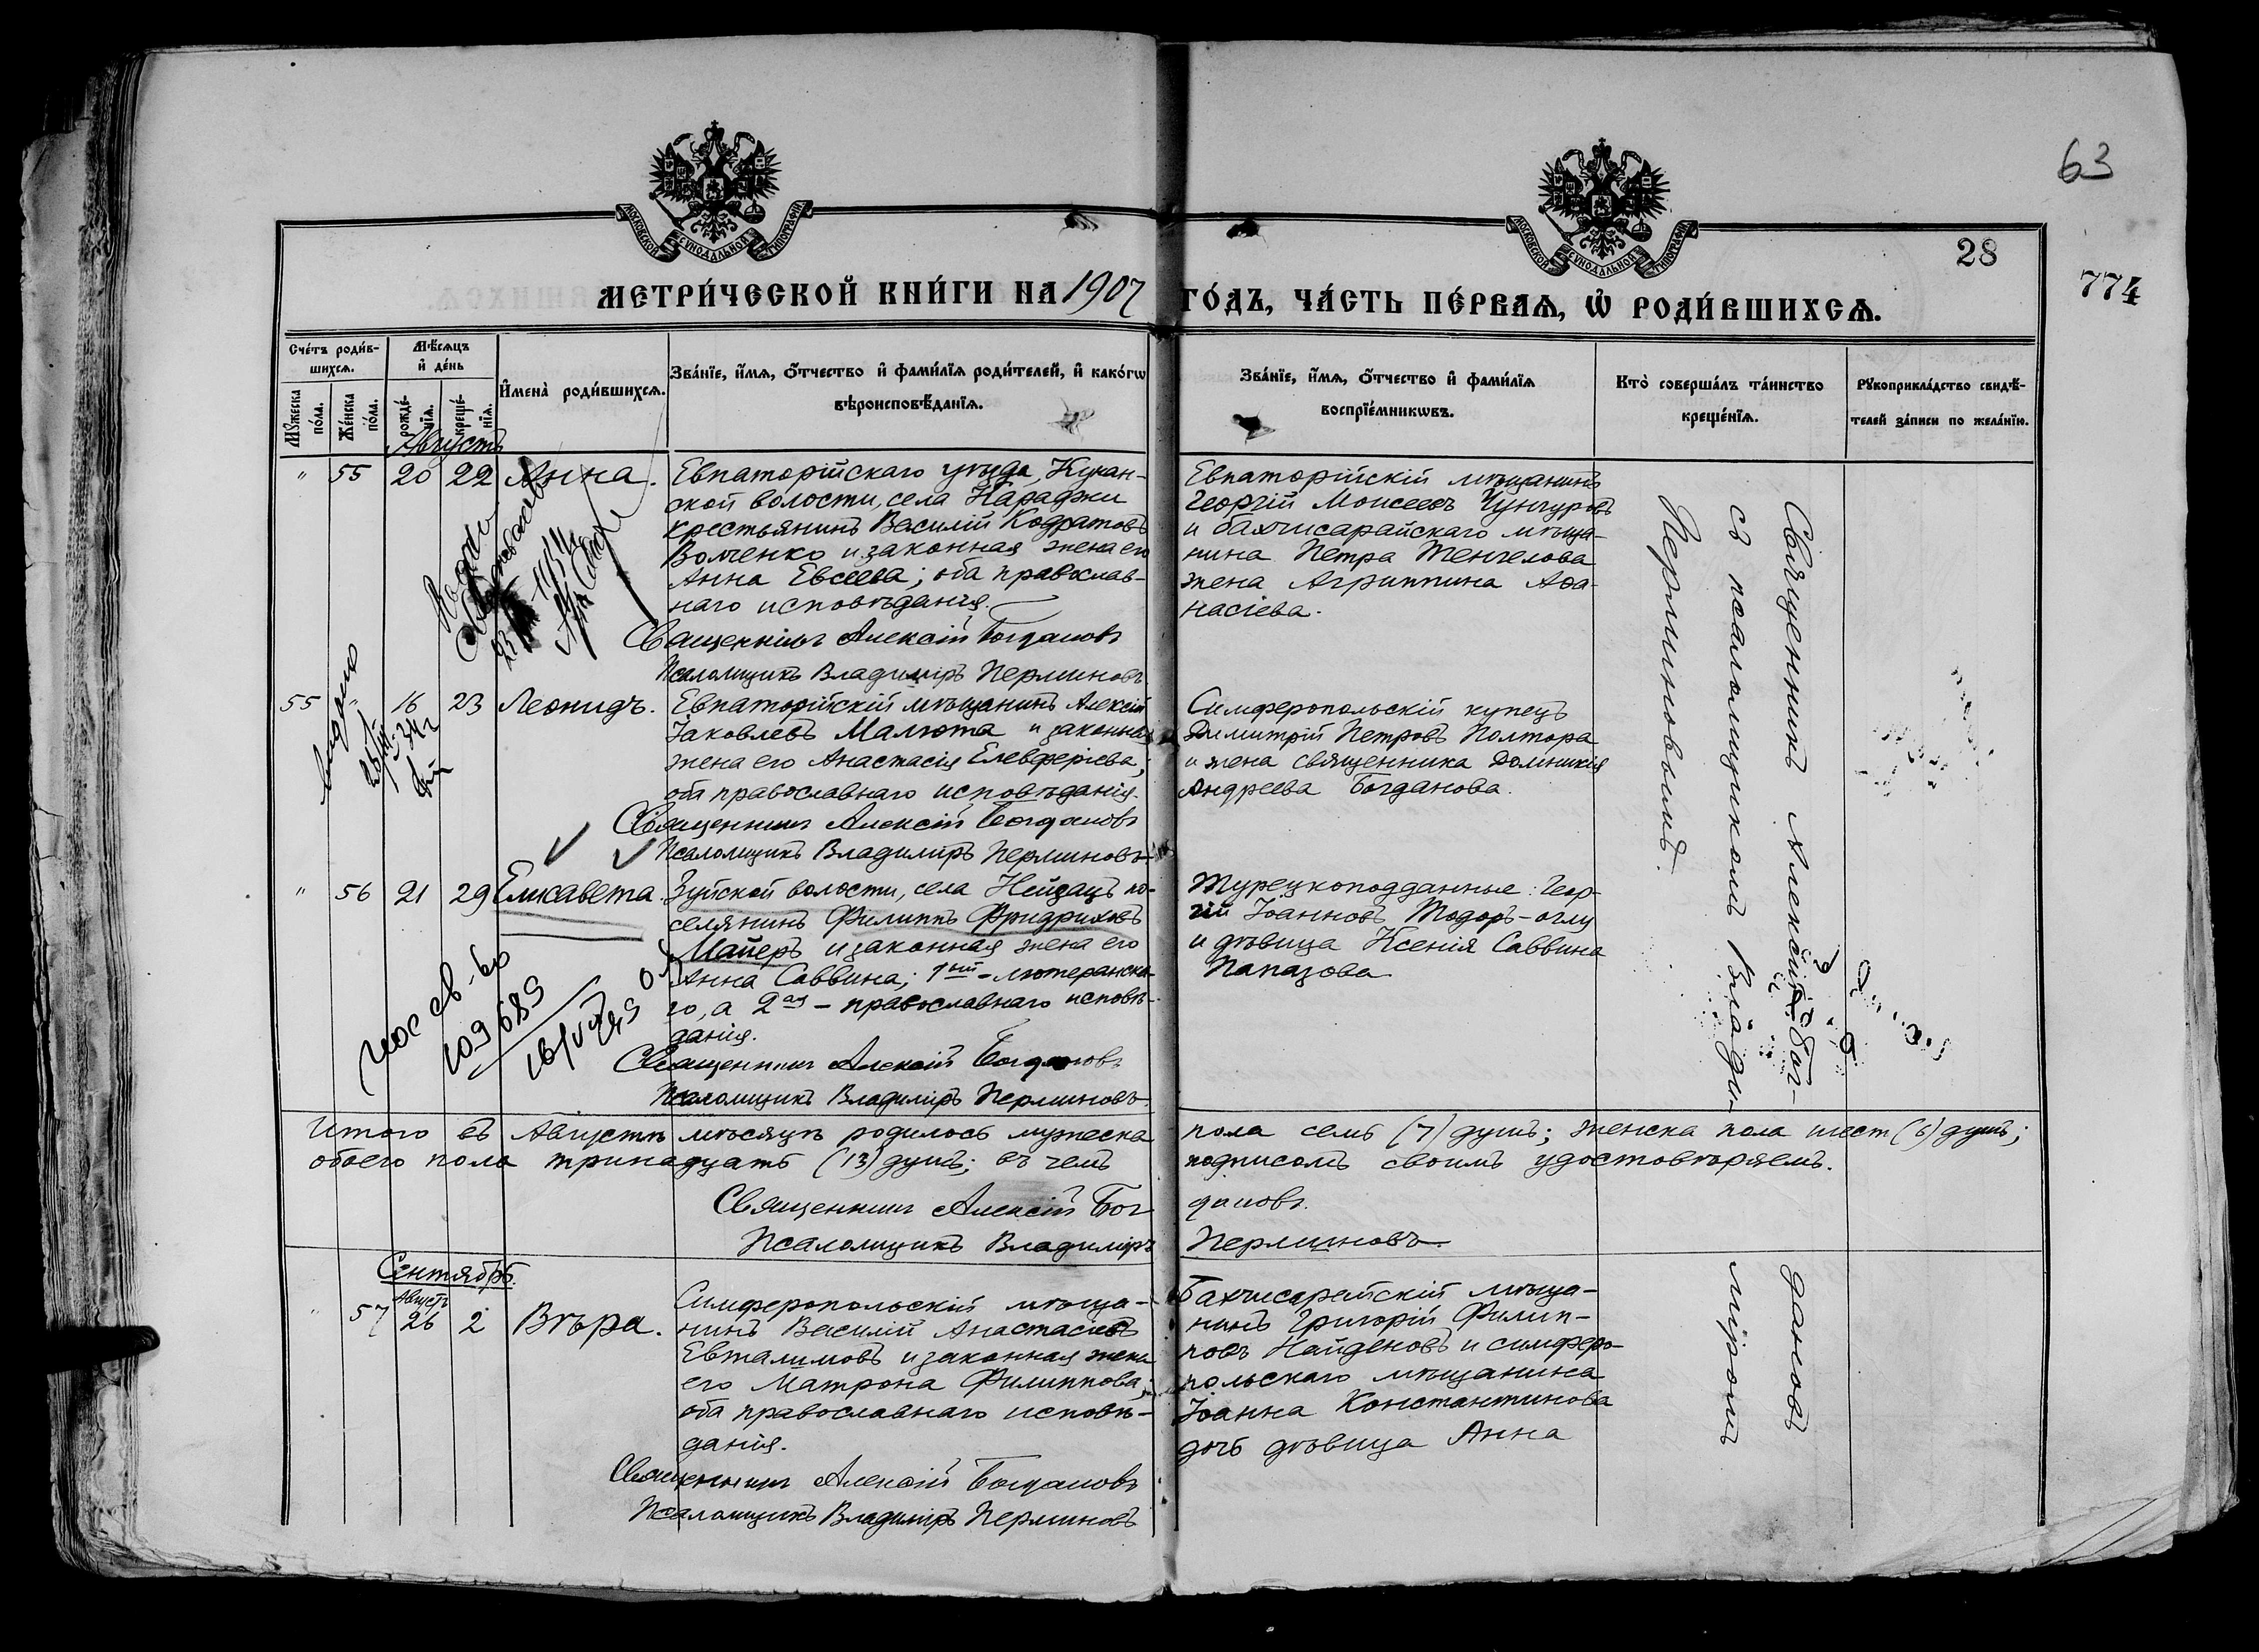 63
МОСКОВСКОЙ СѴНОДАЛЬНОЙ ТИПОГРАФІИ
МОСКОВСКОЙ СѴНОДАЛЬНОЙ ТИПОГРАФІИ
28
774
МЕТРИ́ЧЕСКОЙ КНИ́ГИ НА 1907 ГО́ДЪ, ЧА́СТЬ ПЕ́РВАѦ, Ѡ҆ РОДИ́ВШИХСѦ.
Сче́тъ роди́в-
шихсѧ.
Мꙋжеска по́ла.
Же́нска по́ла.
Мѣ́сѧцъ
и҆ де́нь
рожде́-
нїѧ.
креще́-
нїѧ.
И҆мена̀ роди́вшихсѧ.
Зва́нїе, и҆́мѧ, ѻ҆́тчество и҆ фами́лїѧ роди́телей, и҆ како́гѡ
вѣроисповѣ́данїѧ.
Зва́нїе, и҆́мѧ, ѻ҆́тчество и҆ фами́лїѧ
воспрїе́мникѡвъ.
Кто̀ соверша́лъ та́инство
креще́нїѧ.
Рꙋкоприкла́дство свидѣ́-
телей за́писи по жела́нїю.
Августъ
" 55 20 22 Анна.
Евпаторійскаго уѣзда, Кунан-
ской волости, села Караджи
крестьянинъ Василій Кодратовъ
Волченко и законная жена его
Анна Евсеева; оба православ-
наго исповѣданія.
Священникъ Алексій Богдановъ
Псаломщикъ Владиміръ Перминовъ.
Евпаторійскій мѣщанинъ
Георгій Моисеевъ Чунгуровъ
и бахчисарайскаго мѣща-
нина Петра Тенчелова
жена Агриппина Аѳа-
насіева.
Священникъ Алексій Бог-
съ псаломщикомъ Влади-
Перминовымъ.
55 " 16 23 Леонидъ.
Евпаторійскій мѣщанинъ Алексій
Іаковлевъ Малюта и законная
жена его Анастасія Елевферіева;
оба православнаго исповѣданія.
Священникъ Алексій Богдановъ
Псаломщикъ Владиміръ Перминовъ
Симферопольскій купецъ
Димитрій Петровъ Полтора
и жена священника Домникія
Андреева Богданова.
выдано
" 56 21 29 Елисавета.
Зуйской волости, села Нейзацъ по-
селянинъ Филиппъ Фридриховъ
Майеръ и законная жена его
Анна Саввина; 1ый - лютеранска-
го, а 2ая - православнаго исповѣ-
данія.
Священникъ Алексій Богдановъ
Псаломщикъ Владиміръ Перминовъ.
Турецкоподданные: Геор-
гій Іоанновъ Тодоръ-оглу
и дѣвица Ксенія Саввина
Папазова
109689
Итого въ Августѣ мѣсяцѣ родилось мужеска пола семь (7) душъ; женска пола шест (6) душъ;
обоего пола тринадцать (13) душъ; въ чемъ подписомъ своимъ удостовѣряемъ.
Священникъ Алексій Богдановъ.
Псаломщикъ Владиміръ Перминовъ.
Сентябрь.
Август.
" 57 26 2 Вѣра.
Симферопольскій мѣща-
нинъ Василій Анастасіевъ
Евталимовъ и законная жена
его Матрона Филиппова;
оба православнаго исповѣ-
данія.
Священникъ Алексій Богдановъ
Псаломщикъ Владиміръ Перминовъ
Бахчисарайскій мѣща-
нинъ Григорій Филип-
повъ Найденовъ и симферо-
польскаго мѣщанина
Іоанна Константинова
дочь дѣвица Анна
дановъ
міромъ